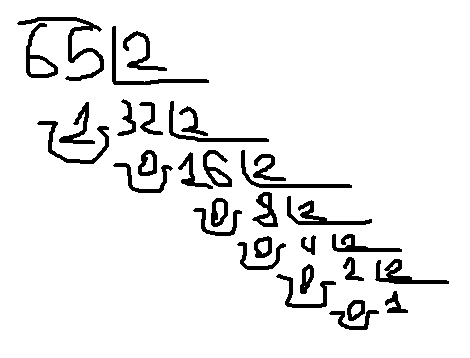 65 2
1 32 2
0 16 2
0 8 2
0 4 2
0 2 2
0 1